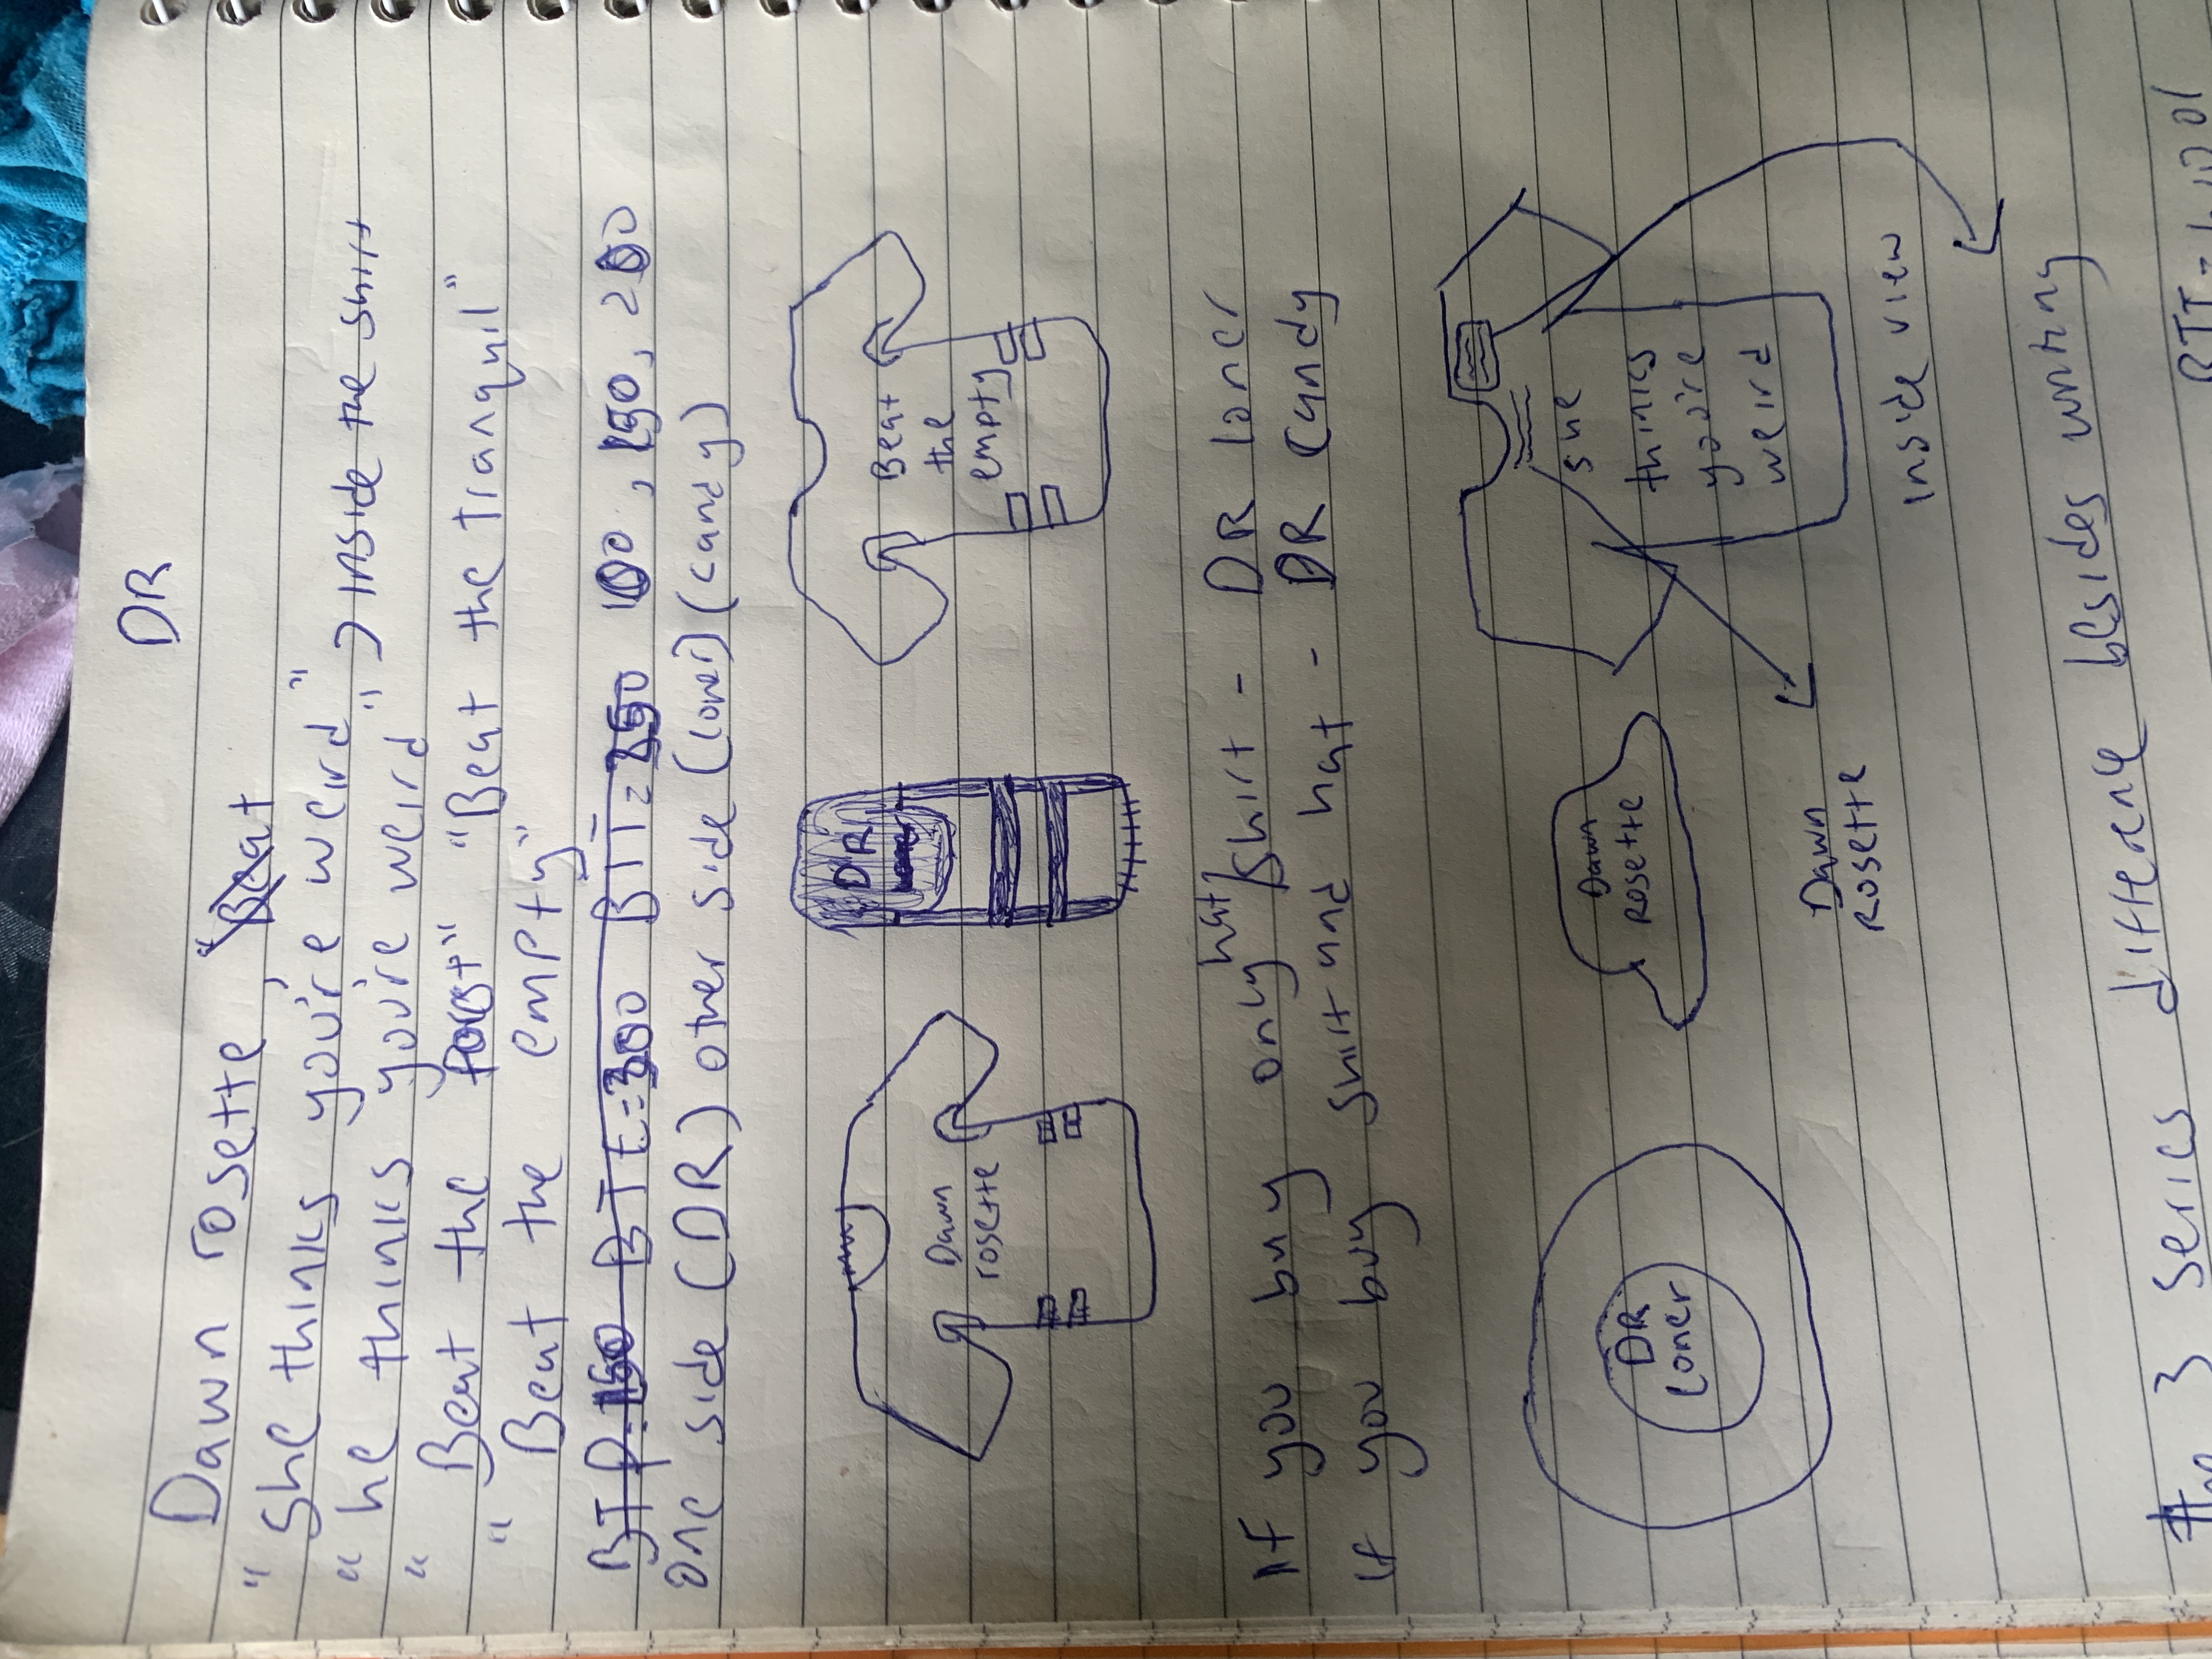 DR
Dawn rosette, "Beat
"she thinks you're weird"
"he thinks you're weird" > inside the shirt
" Beat the " "Beat the tranquil"
" Beat the empty"
BTP= 150 BTE=300 BTT= 100, 150, 200
One side (DR) other side (loner) (candy)
DR
Dawn
rosette
Beat
the
empty
If you buy only hat/shirt - DR loner
If you buy shirt and hat - DR candy
DR
loner
Dawn
Rosette
she
thinks
you're
weird
Dawn
Rosette
inside view
the 3 series difference besides writing
BTT = wool